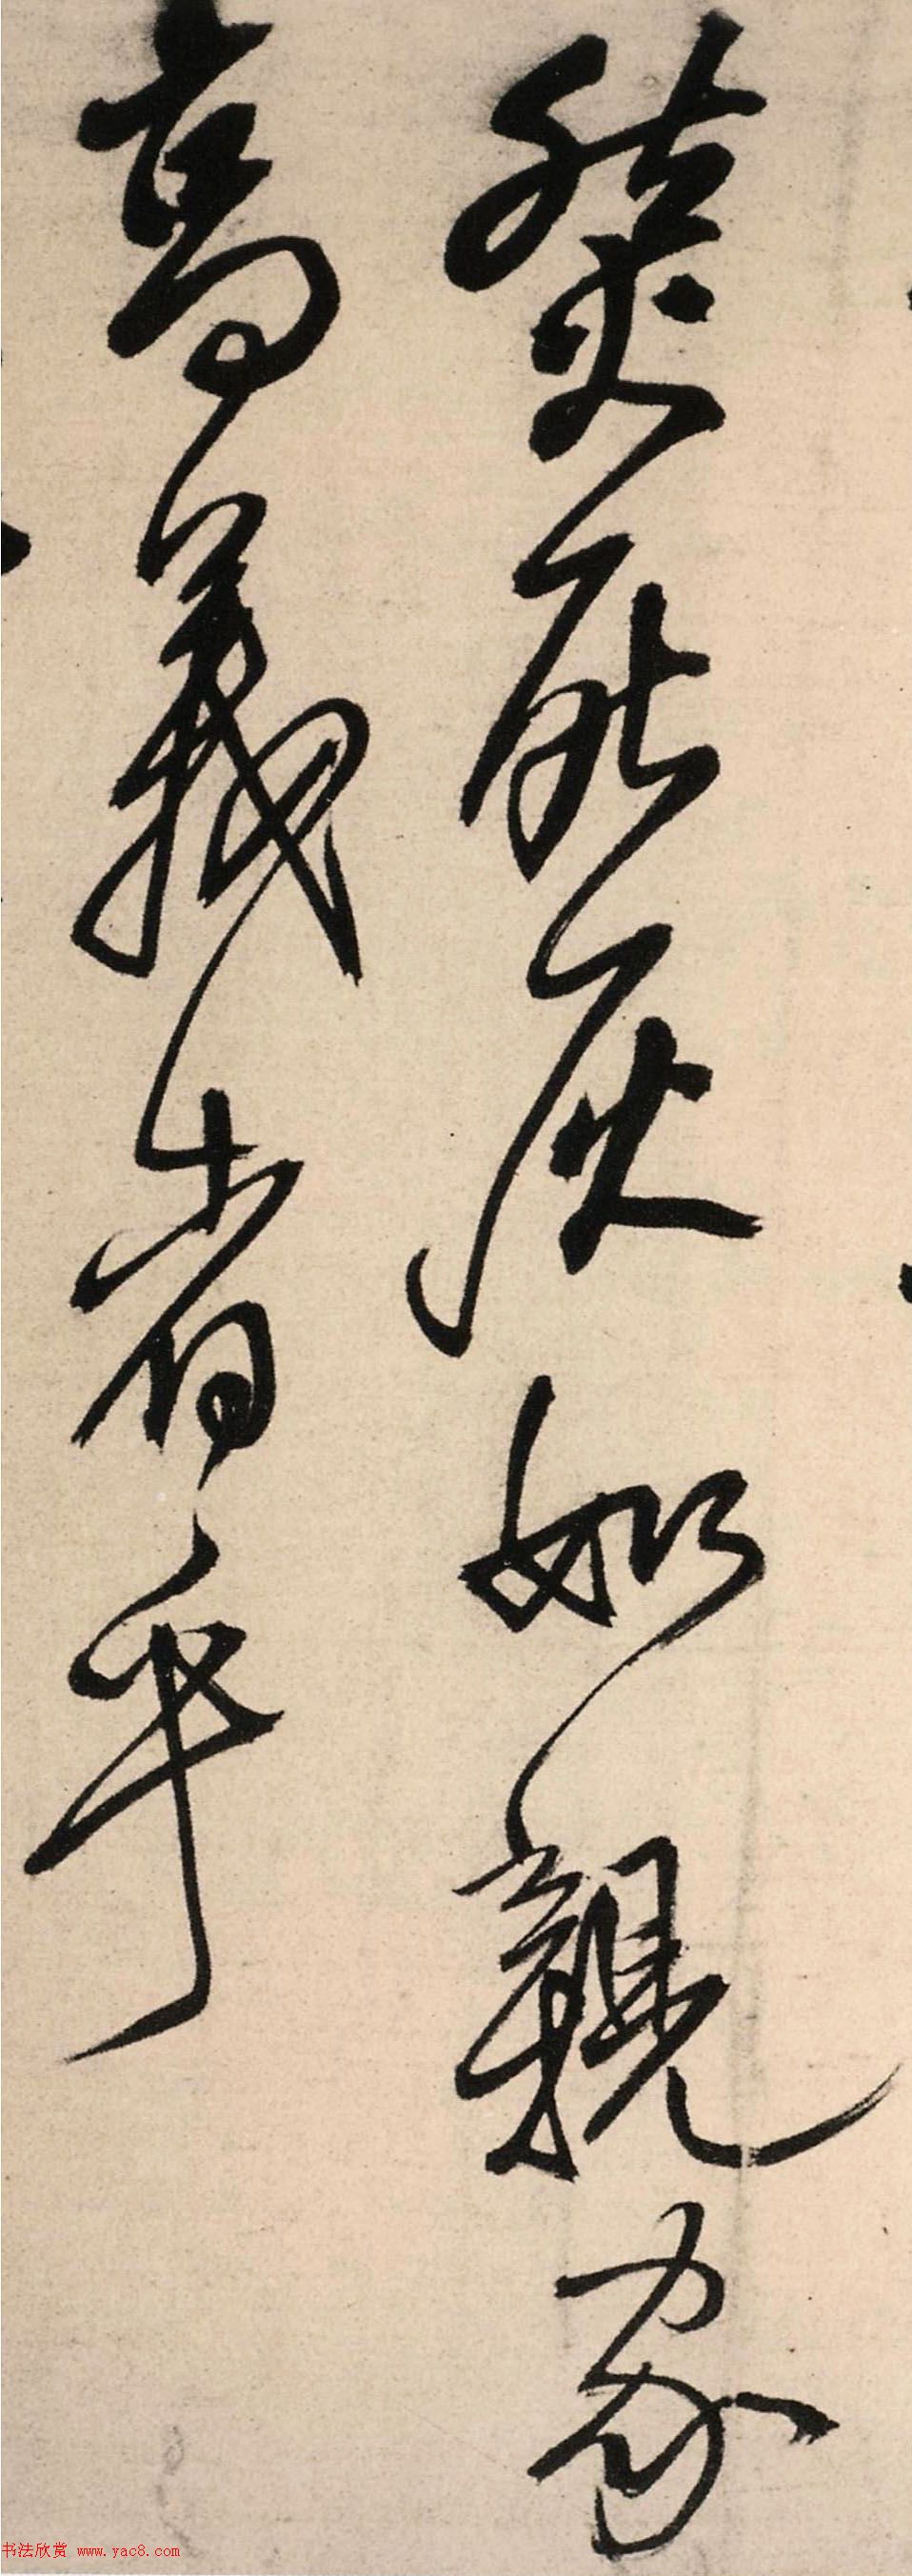 然死灰如親家
高義者乎
书法欣赏 www.yac8.com